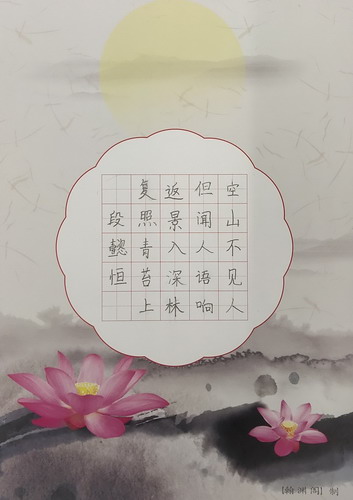 空山不见人
但闻人语响
返景入深林
复照青苔上
段懿恒
【翰渊阁】制